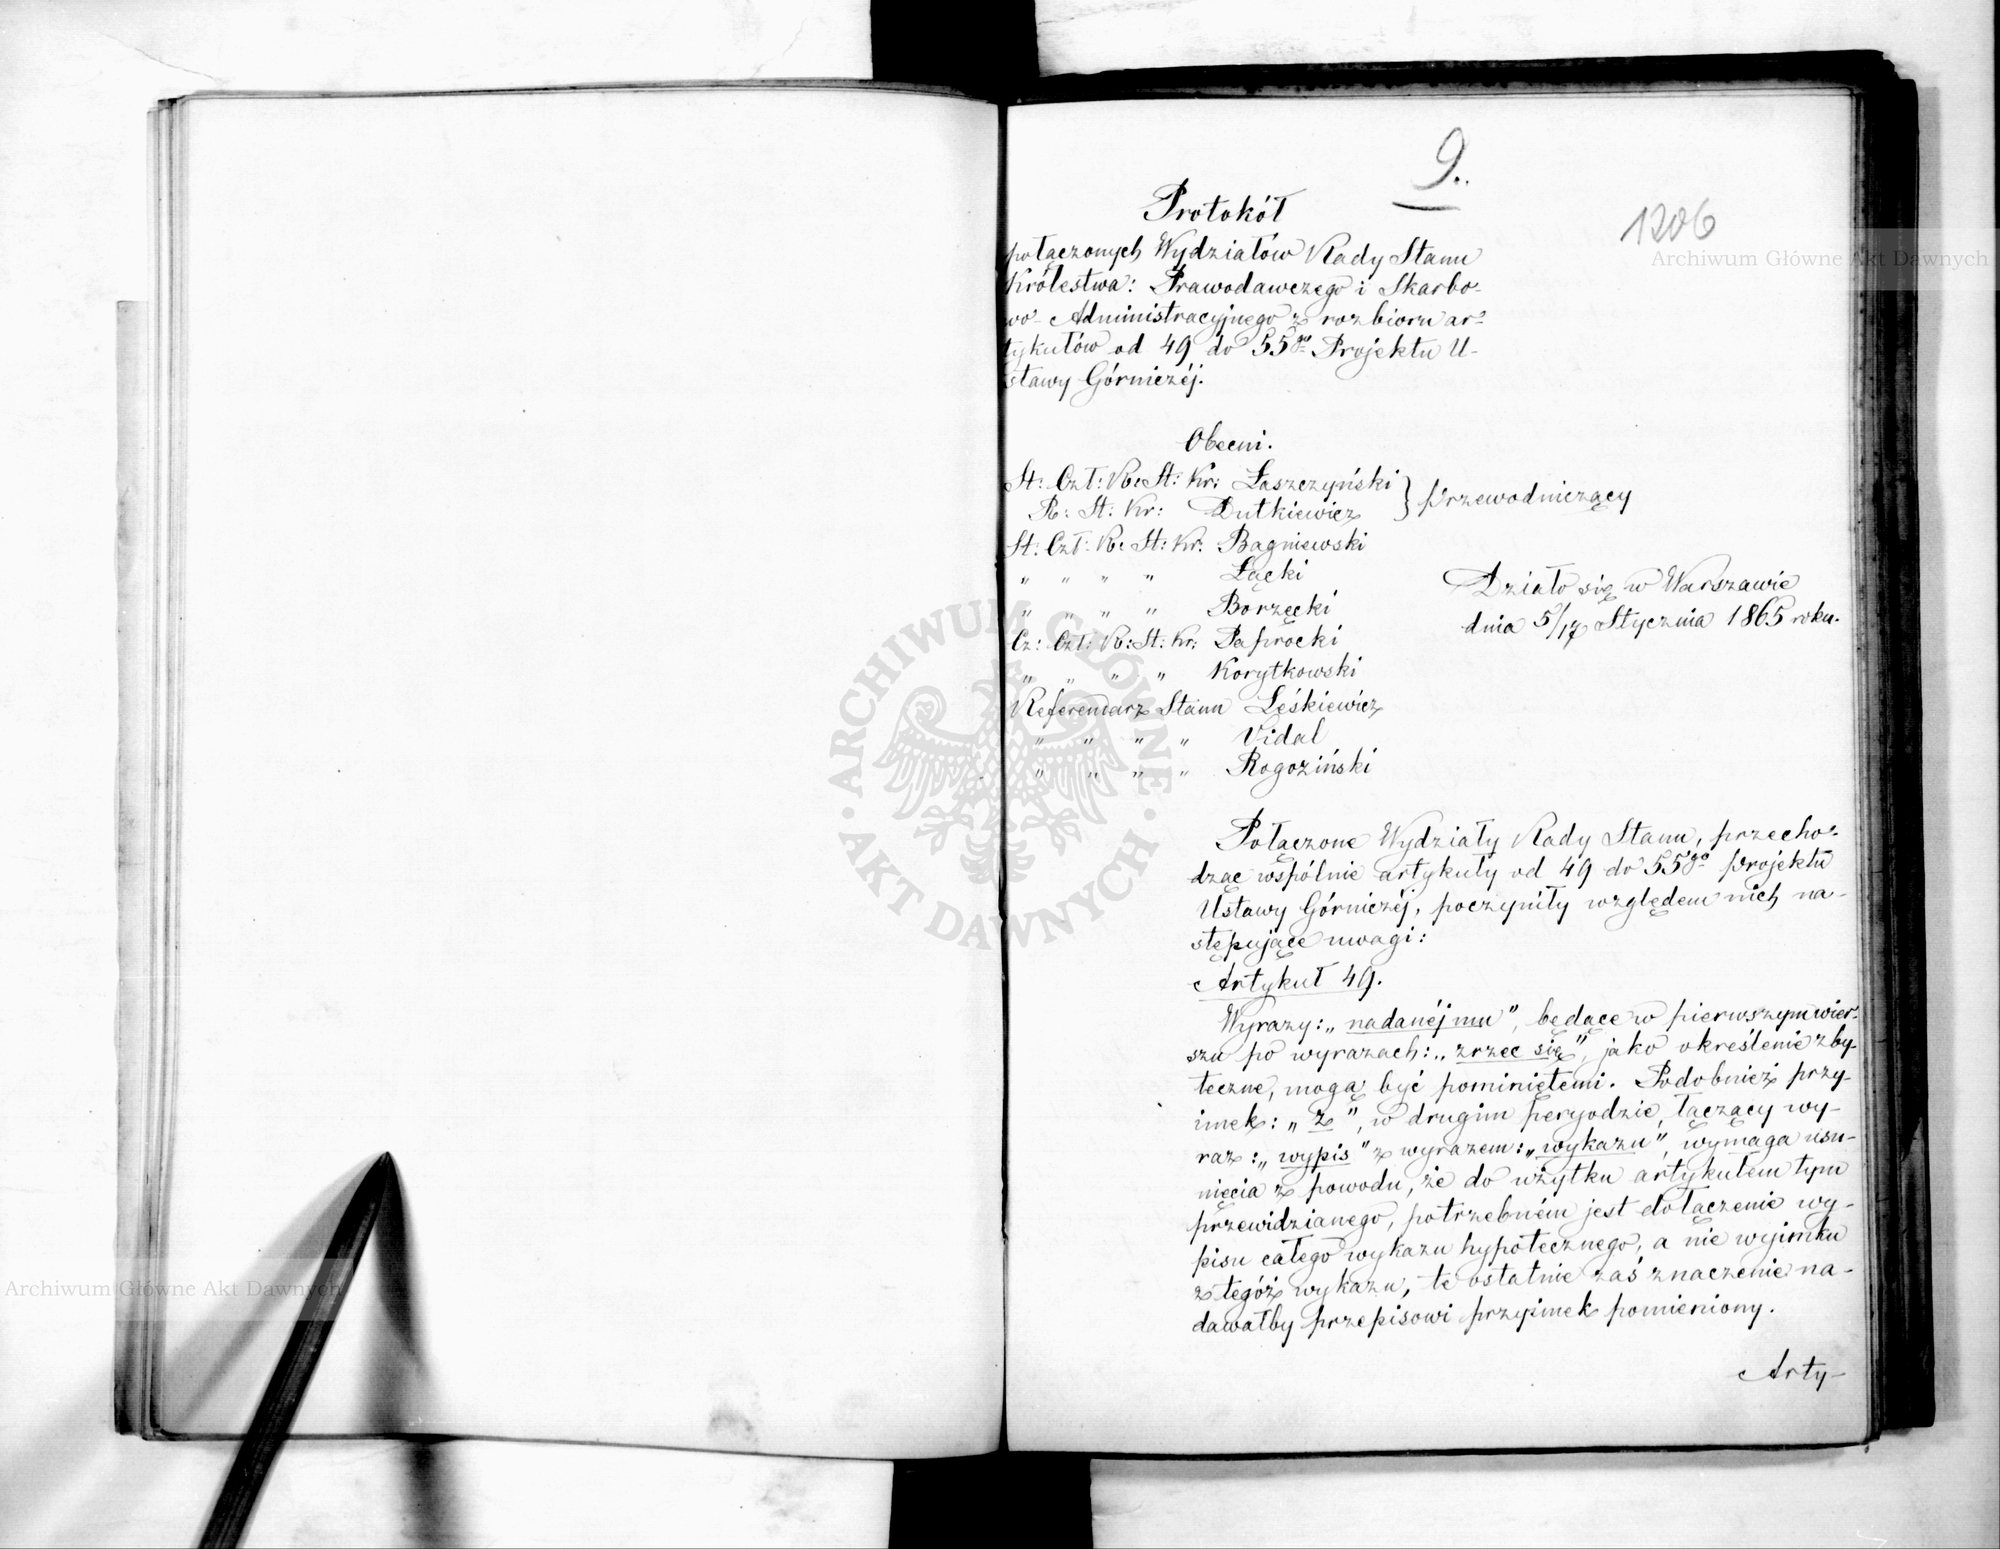 9.
1206
Archiwum Główne Akt Dawnych
Protokół
połączonych Wydziałów Rady Stanu
Królestwa: Prawodawczego i Skarbo-
wo-Administracyjnego z rozbioru ar-
tykułów od 49 do 55go Projektu U-
stawy Górniczéj.
Obecni.
St: Czł: R: St: Kr: Łaszczyński } Przewodniczący
R: St: Kr: Dutkiewicz
St: Czł: R: St: Kr: Bagniewski
" " " " Łącki
" " " " Borzęcki
Cz: Czł: R: St: Kr: Paprocki
" " " " Korytkowski
Referendarz Stanu Leśkiewicz
" " " " Vidal
" " " " Rogoziński
Działo się w Warszawie
dnia 5/17 Stycznia 1865 roku.
ARCHIWUM GŁÓWNE AKT DAWNYCH
Połączone Wydziały Rady Stanu, przecho-
dząc wspólnie artykuły od 49 do 55go projektu
Ustawy Górniczéj, poczyniły względem nich na-
stępujące uwagi:
Artykuł 49.
Wyrazy: „nadanéj mu", będące w pierwszym wier-
szu po wyrazach: „zrzec się", jako określenie zby-
teczne, mogą być pominiętemi. Podobnież przy-
imek: „z", w drugim peryodzie, łączący wy-
raz: „wypis" z wyrazem: „wykazu", wymaga usu-
nięcia z powodu, że do użytku artykułem tym
przewidzianego, potrzebném jest dołączenie wy-
pisu całego wykazu hypotecznego, a nie wyimku
z tegóż wykazu, te ostatnie zaś znaczenie na-
dawałby przepisowi przyimek pomieniony.
Arty-
Archiwum Główne Akt Dawnych